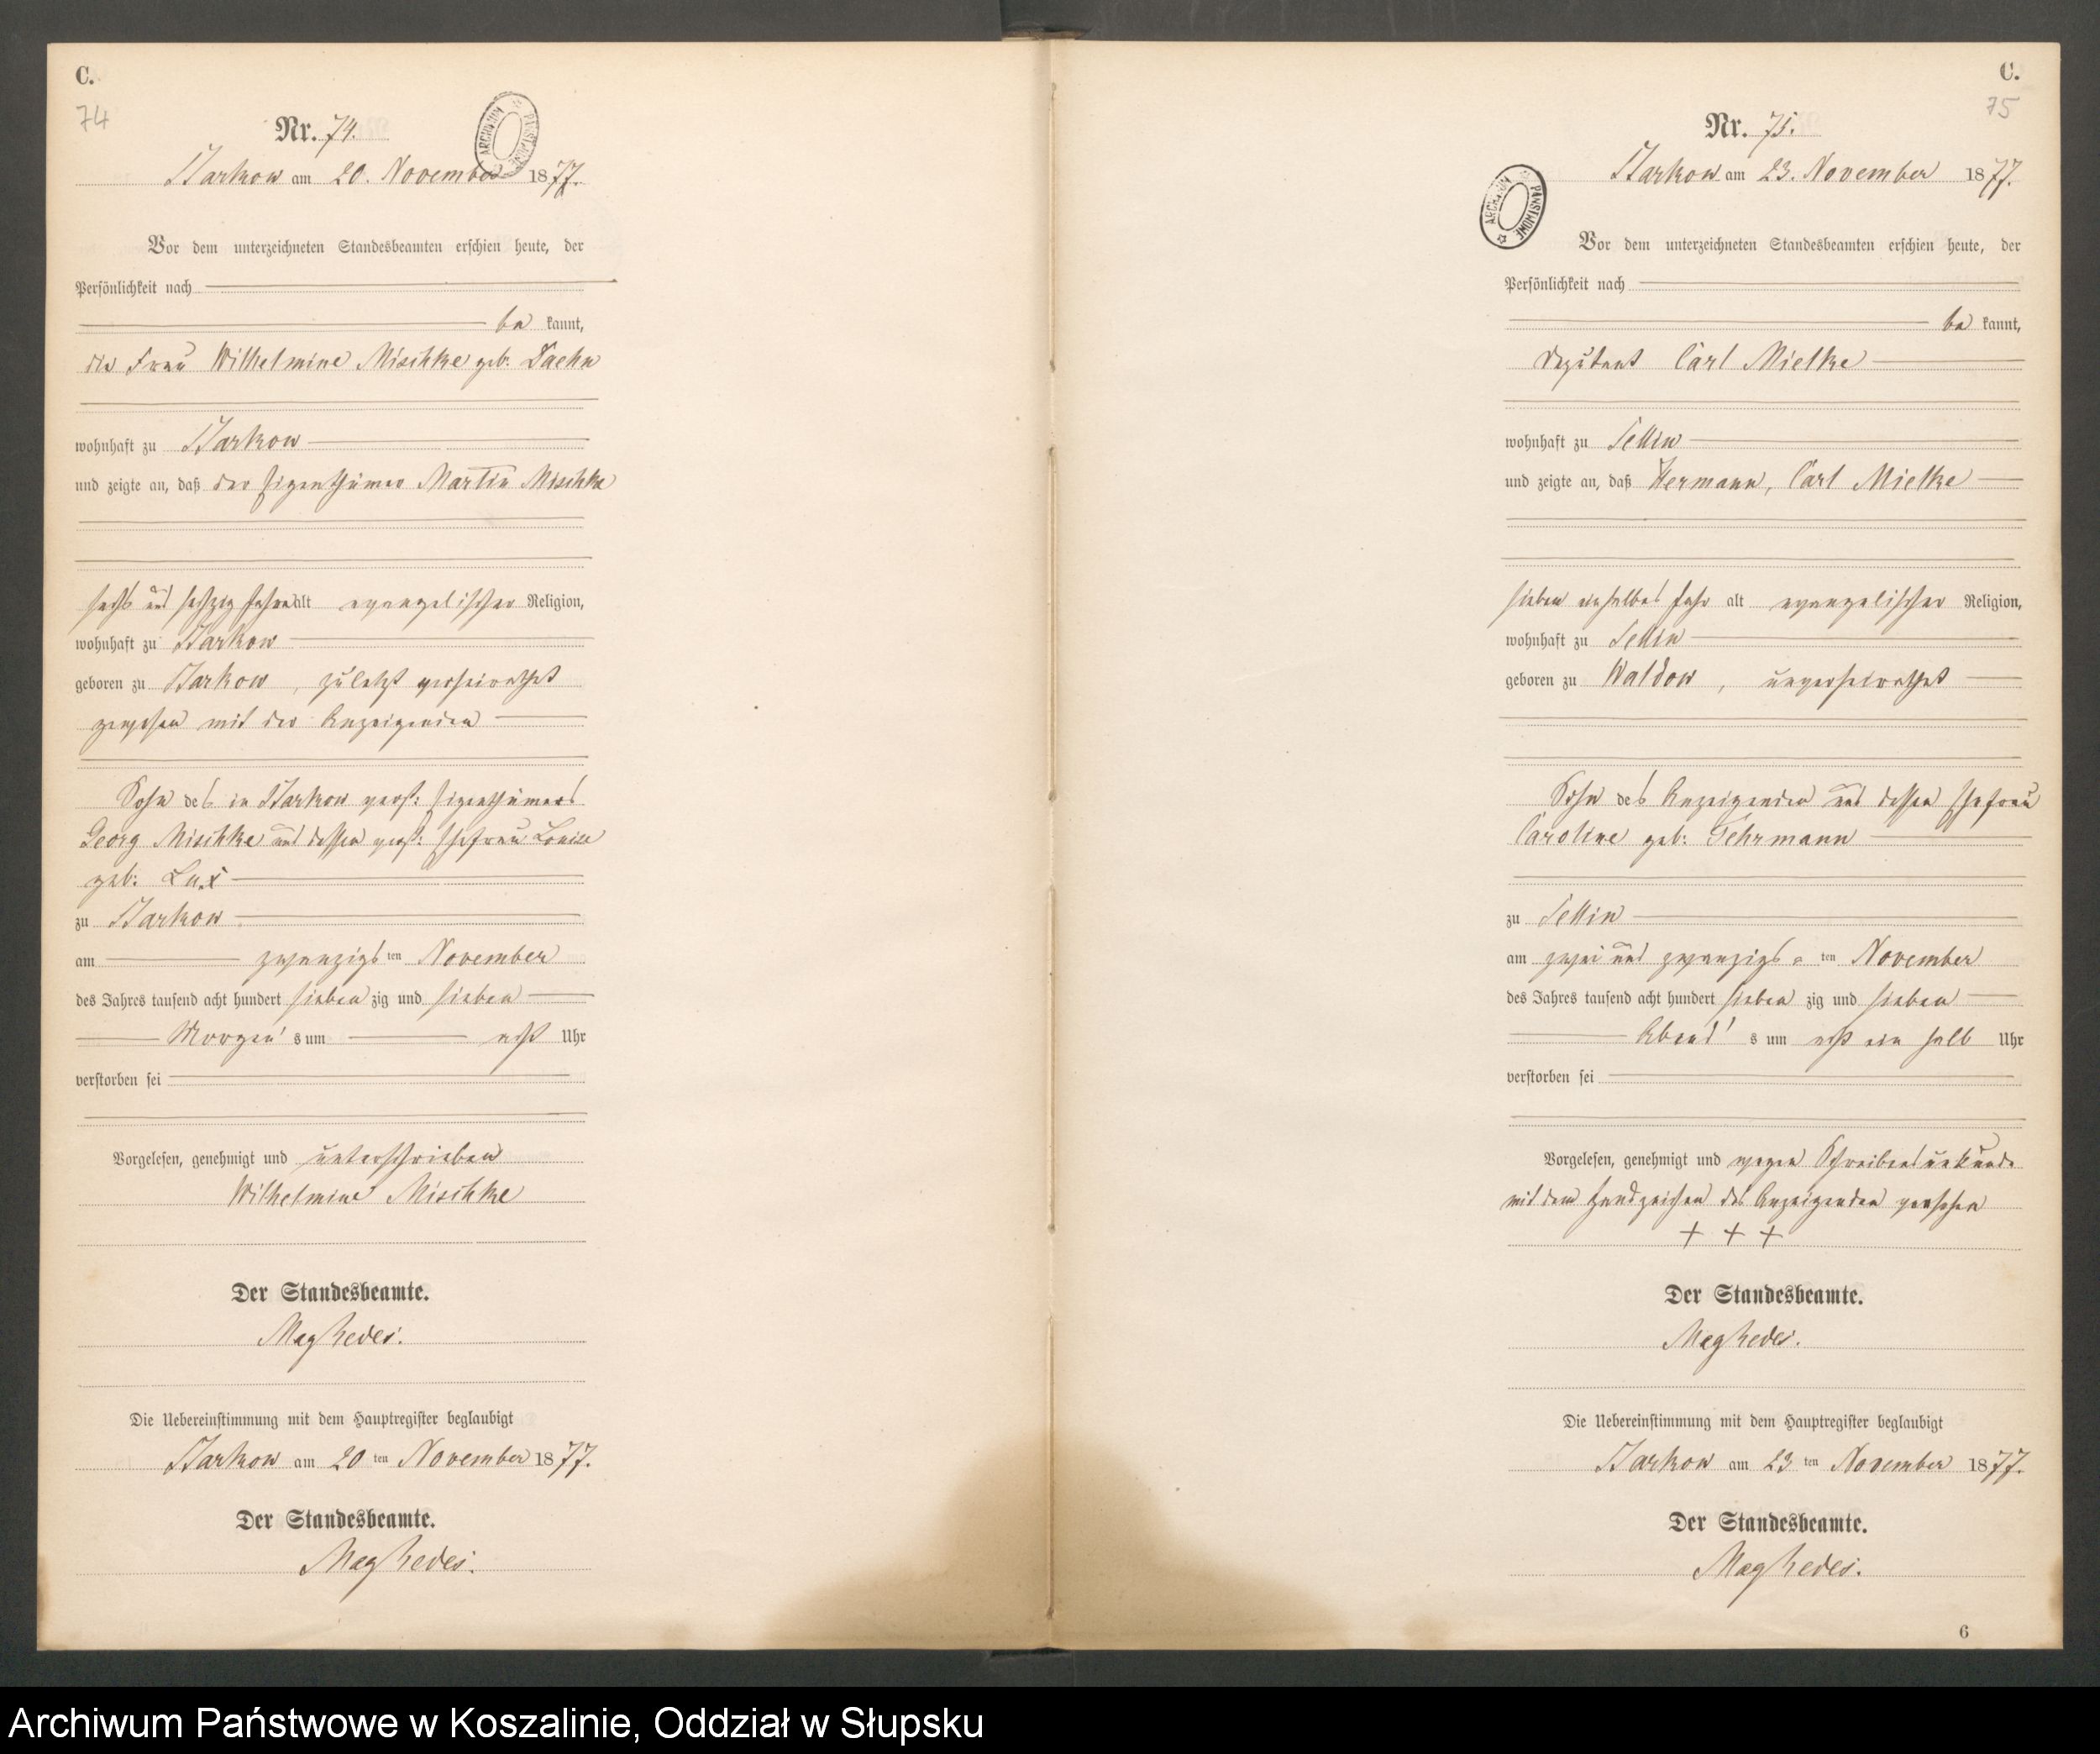 C.
74
Nr. 74.
ARCHIWUM PAŃSTWOWE
Starkow am 20. November 1877.
Vor dem unterzeichneten Standesbeamten erschien heute, der
Persönlichkeit nach
be kannt,
die Frau Wilhelmine Mischke geb. Daehn
wohnhaft zu Starkow
und zeigte an, daß der Eigenthümer Martin Mischke
sechs und sechzig Jahre alt evangelischer Religion,
wohnhaft zu Starkow
geboren zu Starkow, zuletzt verheirathet
gewesen mit der Anzeigenden
Sohn des in Starkow verst: Eigenthümers
Georg Mischke und dessen verst: Ehefrau Louise
geb: Lux
zu Starkow
am zwanzigsten November
des Jahres tausend acht hundert sieben zig und sieben
Morgen's um acht Uhr
verstorben sei
Vorgelesen, genehmigt und unterschrieben
Wilhelmine Mischke
Der Standesbeamte.
Die Uebereinstimmung mit dem Hauptregister beglaubigt
Starkow am 20 ten November 1877.
Der Standesbeamte.
C.
75
Nr. 75.
ARCHIWUM PAŃSTWOWE
Starkow am 23. November 1877.
Vor dem unterzeichneten Standesbeamten erschien heute, der
Persönlichkeit nach
be kannt,
Deputant Carl Mielke
wohnhaft zu Sellin
und zeigte an, daß Hermann, Carl Mielke
sieben einhalbes Jahr alt evangelischer Religion,
wohnhaft zu Sellin
geboren zu Waldow, unverheirathet
Sohn des Anzeigenden und dessen Ehefrau
Caroline geb: Fehrmann
zu Sellin
am zwei und zwanzigs = ten November
des Jahres tausend acht hundert sieben zig und sieben
Abend's um acht ein halb Uhr
verstorben sei
Vorgelesen, genehmigt und wegen Schreibensunkunde
mit dem Handzeichen des Anzeigenden versehen
+ + +
Der Standesbeamte.
Die Uebereinstimmung mit dem Hauptregister beglaubigt
Starkow am 23 ten November 1877.
Der Standesbeamte.
6
Archiwum Państwowe w Koszalinie, Oddział w Słupsku